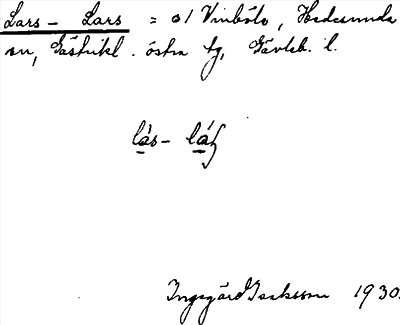 Lars - Lars = o/ Vinböle, Hedesunda
sn, Gästrikl. östra tg, Gävleb. l.
lás- láꞩ
Ingegärd Isaksson 1930.